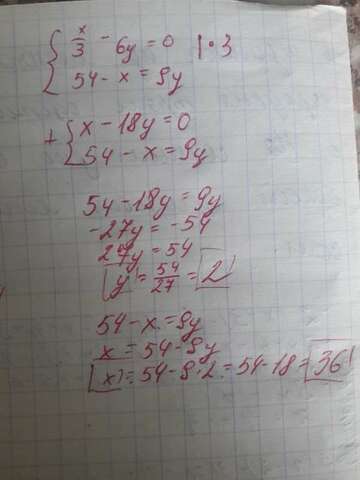 x/3 - 6y = 0 | · 3
54 - x = 9y
+ x - 18y = 0
54 - x = 9y
54 - 18y = 9y
-27y = -54
27y = 54
y = 54/27 = 2
54 - x = 9y
x = 54 - 9y
x = 54 - 9 · 2 = 54 - 18 = 36